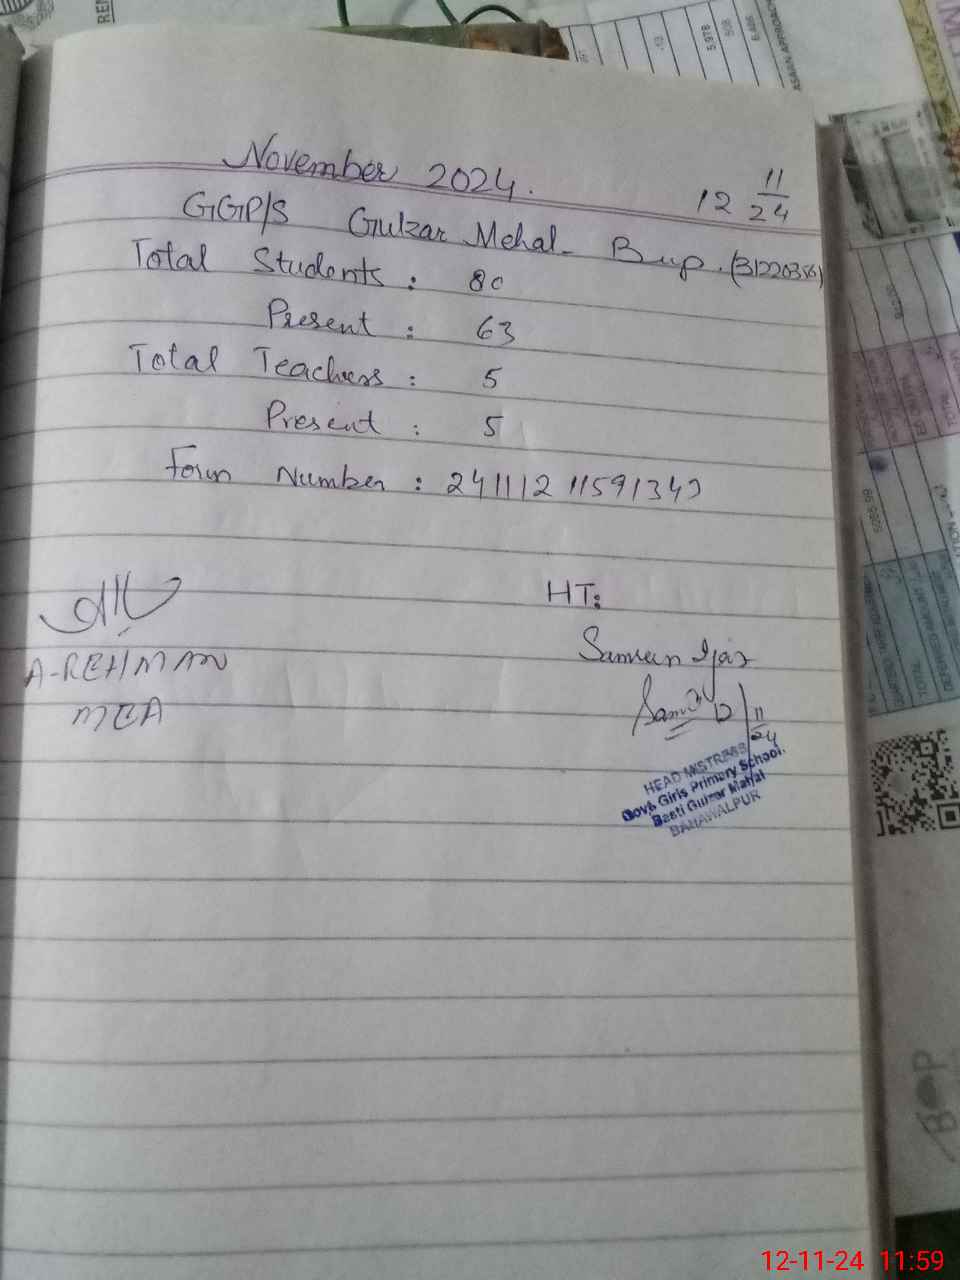 November 2024.
12 11/24
GGP/S Gulzar Mehal- Bwp. (31220356)
Total Students : 80
Present : 63
Total Teachers : 5
Present : 5
Form Number : 241112 11591349
A-REHMAN
MEA
HT:
Samreen Ijaz
12/11/24
HEAD MISTRESS
Govt. Girls Primary School.
Basti Gulzar Mahal
BAHAWALPUR
5,978
508
6,486
TOTAL
BOP
12-11-24 11:59